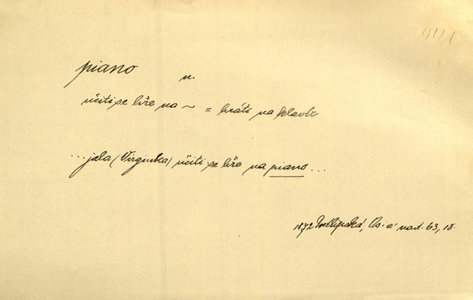 piano n.
učiti se hře na ~ = hráti na klavír
...jala (Virginka) učiti se hře na piano...
1872 Podlipská, Os. a nad. 63, 18.